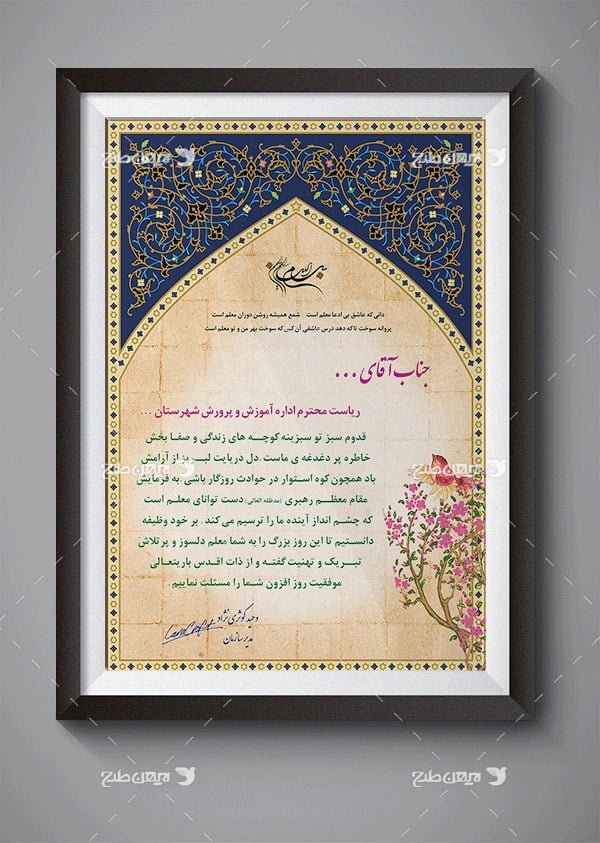 میهن طرح
میهن طرح
دانی که عاشق بی ادعا معلم است شمع همیشه روشن دوران معلم است
پروانه سوخت تا که دهد درس عاشقی آن کس که سوخت بهر من و تو معلم است
جناب آقای ...
ریاست محترم اداره آموزش و پرورش شهرستان ...
قدوم سبز تو سبزینه کوچه های زندگی و صفا بخش
خاطره پر دغدغه ی ماست. دل دریایت لبریز از آرامش
باد همچون کوه استوار در حوادث روزگار باشی. به فرمایش
مقام معظم رهبری (مدظله العالی) دست توانای معلم است
که چشم انداز آینده ما را ترسیم می کند. بر خود وظیفه
دانستیم تا این روز بزرگ را به شما معلم دلسوز و پرتلاش
تبریک و تهنیت گفته و از ذات اقدس باریتعالی
موفقیت روز افزون شما را مسئلت نماییم
وحید کوثری نژاد
مدیر سازمان
میهن طرح
میهن طرح
میهن طرح
میهن طرح